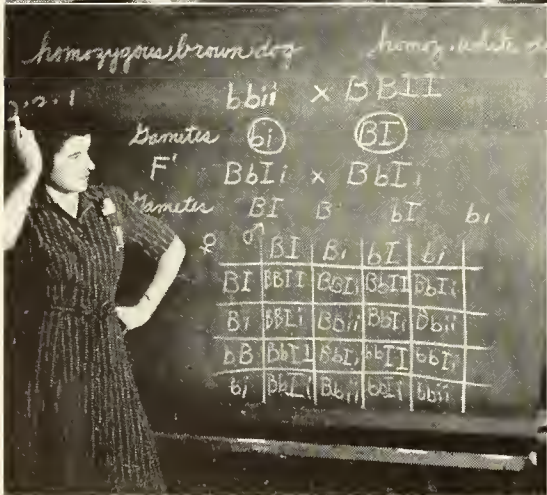 homozygous brown dog homoz. white
bbii x BBII
Gametes bi BI
F' BbIi x BbIi
Gametes BI B bI bi
♀ ♂ BI Bi bI bi
BI BBII BBIi BbII BbIi
Bi BBIi BBii BbIi Bbii
bB BbII BbIi bbII bbIi
bi BbIi Bbii bbIi bbii